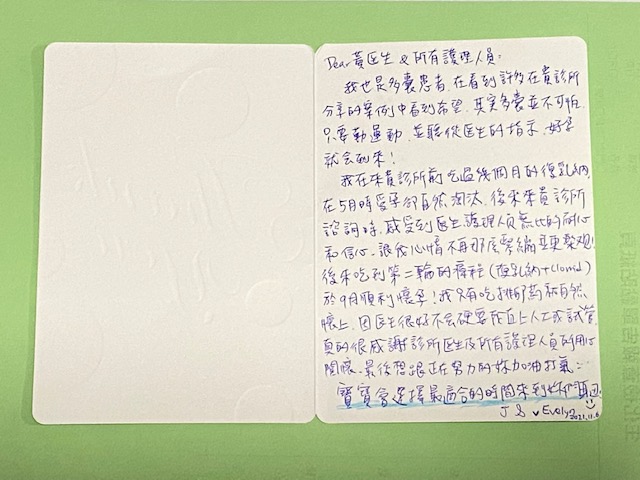 Dear 黃医生 & 所有護理人員：
我也是多囊患者，在看到許多在貴診所
分享的案例中看到希望，其實多囊並不可怕
只要勤運動，並聽從医生的指示，好孕
就会到來！
我在來貴診所前吃過幾個月的復乳納，
在5月時受孕卻自然淘汰，後來來貴診所
諮詢時，感受到医生、護理人員無比的耐心
和信心，讓我心情不再那麼緊繃並更樂观！
後來吃到第二輪的療程（復乳納+Clomid）
於9月順利懷孕！我只有吃排卵药就自然
懷上，因医生很好不会硬要所直上人工或試管
真的很感謝診所医生及所有護理人員的用心
關懷。最後想跟正在努力的妳加油打氣：
寶寶會選擇最適合的時間來到妳們身边
J & ♥ Evelyn
2021.11.6